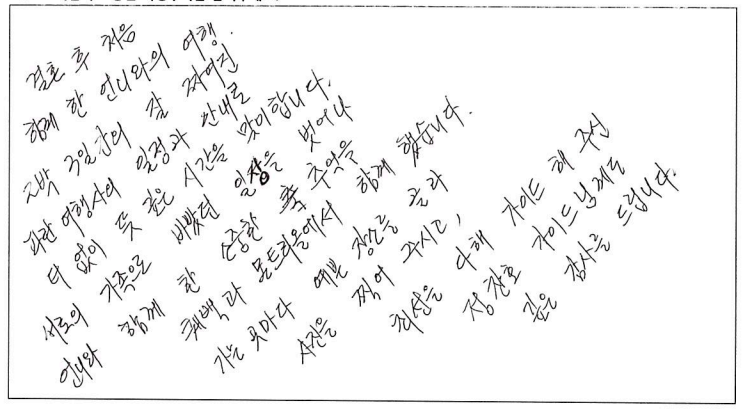 결혼 후 처음
함께 한 언니와의 여행.
2박 3일간의 잘 짜여진
파란 여행사의 일정과 안내로
더 없이 뜻 깊은 시간을 맞이합니다.
서로의 가족으로 바빴던 일상을 벗어나
언니와 함께 한 소중한 추억을
퀘백과 몬트리올에서 함께 했습니다.
가는 곳마다 예쁜 장소를 골라
사진을 찍어 주시고,
최선을 다해 가이드 해 주신
정찬호 가이드님께도
깊은 감사를 드립니다.